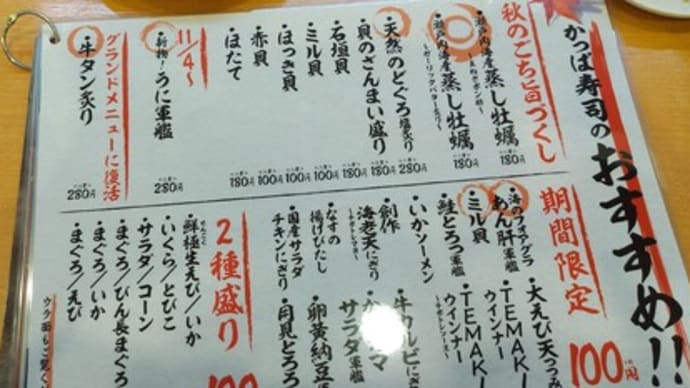 かっぱ寿司のおすすめ!!
秋のごち旨づくし
・瀬戸内海産蒸し牡蠣
180円
・瀬戸内海産蒸し牡蠣
～ガーリックバター炙り～
180円
・天然のどぐろ塩炙り
280円
・貝のさんまい盛り
180円
・石垣貝
100円
・ミル貝
100円
・ほっき貝
100円
・赤貝
100円
・ほたて
180円
11/4～
・新物!うに軍艦
280円
グランドメニューに復活
・牛タン炙り
280円
期間限定
100円
・海のフォアグラ
あん肝軍艦
・ミル貝
・鮭とろっ軍艦
・いかソーメン
・創作
海老天にぎり
・なすの
揚げびたし
・国産サラダ
チキンにぎり
・大えび天
・TEMAKI
ウインナー
・TEMAKI
ウインナー
・牛カルビにぎり
サラダ軍艦
・卵黄納豆軍
・月見とろろ
2種盛り
100
・鮮極生えび/いか
・いくら/とびこ
・サラダ/コーン
・まぐろ/びん長まぐろ
・まぐろ/いか
・まぐろ/えび